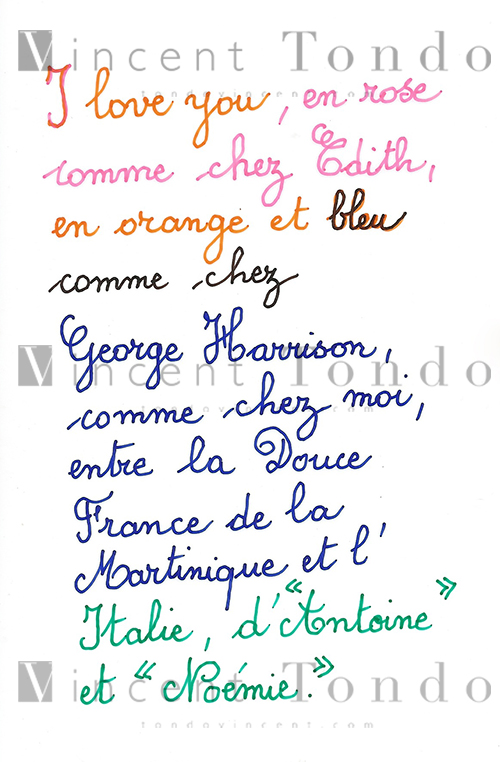 Vincent Tondo
tondovincent.com
I love you, en rose
comme chez Edith,
en orange et bleu
comme chez
George Harrison,
Vincent Tondo
comme chez moi,
tondovincent.com
entre la Douce
France de la
Martinique et l'
Italie, d'“Antoine”
et “Noémie.”
Vincent Tondo
tondovincent.com